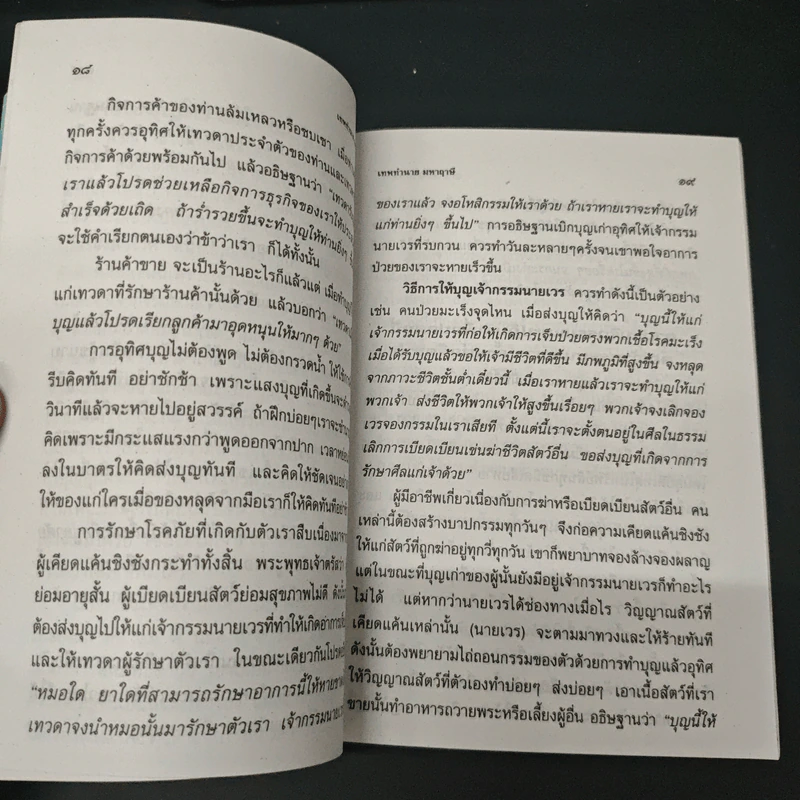 ๑๘
เทพทำนาย
กิจการค้าของท่านล้มเหลวหรือซบเซา
ทุกครั้งควรอุทิศให้เทวดาประจำตัวของท่านและ
กิจการค้าด้วยพร้อมกันไป แล้วอธิษฐานว่า
เราแล้วโปรดช่วยเหลือกิจการธุรกิจของเราให้
สำเร็จด้วยเถิด ถ้าร่ำรวยขึ้นจะทำบุญให้ท่านยิ่งๆ
จะใช้คำเรียกตนเองว่าข้าว่าเรา ก็ได้ทั้งนั้น
ร้านค้าขาย จะเป็นร้านอะไรก็แล้วแต่ เมื่อ
แก่เทวดาที่รักษาร้านค้านั้นด้วย แล้วบอกว่า
บุญแล้วโปรดเรียกลูกค้ามาอุดหนุนให้มากๆ ด้วย"
การอุทิศบุญไม่ต้องพูด ไม่ต้องกรวดน้ำ ให้
รีบคิดทันที อย่าชักช้า เพราะแสงบุญที่เกิดขึ้นจะ
วินาทีแล้วจะหายไปอยู่สวรรค์ ถ้าฝึกบ่อยๆเราจะ
คิดเพราะมีกระแสแรงกว่าพูดออกจากปาก เวลา
ลงในบาตรให้คิดส่งบุญทันที และคิดให้ชัดเจน
ให้ของแก่ใครเมื่อของหลุดจากมือเราก็ให้คิดทันที
การรักษาโรคภัยที่เกิดกับตัวเราสืบเนื่องมา
ผู้เคียดแค้นชิงชังกระทำทั้งสิ้น พระพุทธเจ้าตรัส
ย่อมอายุสั้น ผู้เบียดเบียนสัตว์ย่อมสุขภาพไม่ดี
ต้องส่งบุญไปให้แก่เจ้ากรรมนายเวรที่ทำให้เกิดอาการ
และให้เทวดาผู้รักษาตัวเรา ในขณะเดียวกัน
"หมอใด ยาใดที่สามารถรักษาอาการนี้ให้หาย
เทวดาจงนำหมอนั้นมารักษาตัวเรา เจ้ากรรมนาย
เทพทำนาย มหาฤาษี
๑๙
ของเราแล้ว จงอโหสิกรรมให้เราด้วย ถ้าเราหายเราจะทำบุญให้
แก่ท่านยิ่งๆ ขึ้นไป" การอธิษฐานเบิกบุญเก่าอุทิศให้เจ้ากรรม
นายเวรที่รบกวน ควรทำวันละหลายๆครั้งจนเขาพอใจอาการ
ป่วยของเราจะหายเร็วขึ้น
วิธีการให้บุญเจ้ากรรมนายเวร ควรทำดังนี้เป็นตัวอย่าง
เช่น คนป่วยมะเร็งจุดไหน เมื่อส่งบุญให้คิดว่า "บุญนี้ให้แก่
เจ้ากรรมนายเวรที่ก่อให้เกิดการเจ็บป่วยตรงพวกเชื้อโรคมะเร็ง
เมื่อได้รับบุญแล้วขอให้เจ้ามีชีวิตที่ดีขึ้น มีภพภูมิที่สูงขึ้น จงหลุด
จากภาวะชีวิตชั้นต่ำเดี๋ยวนี้ เมื่อเราหายแล้วเราจะทำบุญให้แก่
พวกเจ้า ส่งชีวิตให้พวกเจ้าให้สูงขึ้นเรื่อยๆ พวกเจ้าจงเลิกจอง
เวรจองกรรมในเราเสียที ตั้งแต่นี้เราจะตั้งตนอยู่ในศีลในธรรม
เลิกการเบียดเบียนเช่นฆ่าชีวิตสัตว์อื่น ขอส่งบุญที่เกิดจากการ
รักษาศีลแก่เจ้าด้วย"
ผู้มีอาชีพเกี่ยวเนื่องกับการฆ่าหรือเบียดเบียนสัตว์อื่น คน
เหล่านี้ต้องสร้างบาปกรรมทุกวันๆ จึงก่อความเคียดแค้นชิงชัง
ให้แก่สัตว์ที่ถูกฆ่าอยู่ทุกวี่ทุกวัน เขาก็พยาบาทจองล้างจองผลาญ
แต่ในขณะที่บุญเก่าของผู้นั้นยังมีอยู่เจ้ากรรมนายเวรก็ทำอะไร
ไม่ได้ แต่หากว่านายเวรได้ช่องทางเมื่อไร วิญญาณสัตว์ที่
เคียดแค้นเหล่านั้น (นายเวร) จะตามมาทวงและให้ร้ายทันที
ดังนั้นต้องพยายามไถ่ถอนกรรมของตัวด้วยการทำบุญแล้วอุทิศ
ให้วิญญาณสัตว์ที่ตัวเองทำบ่อยๆ ส่งบ่อยๆ เอาเนื้อสัตว์ที่เรา
ขายนั้นทำอาหารถวายพระหรือเลี้ยงผู้อื่น อธิษฐานว่า "บุญนี้ให้